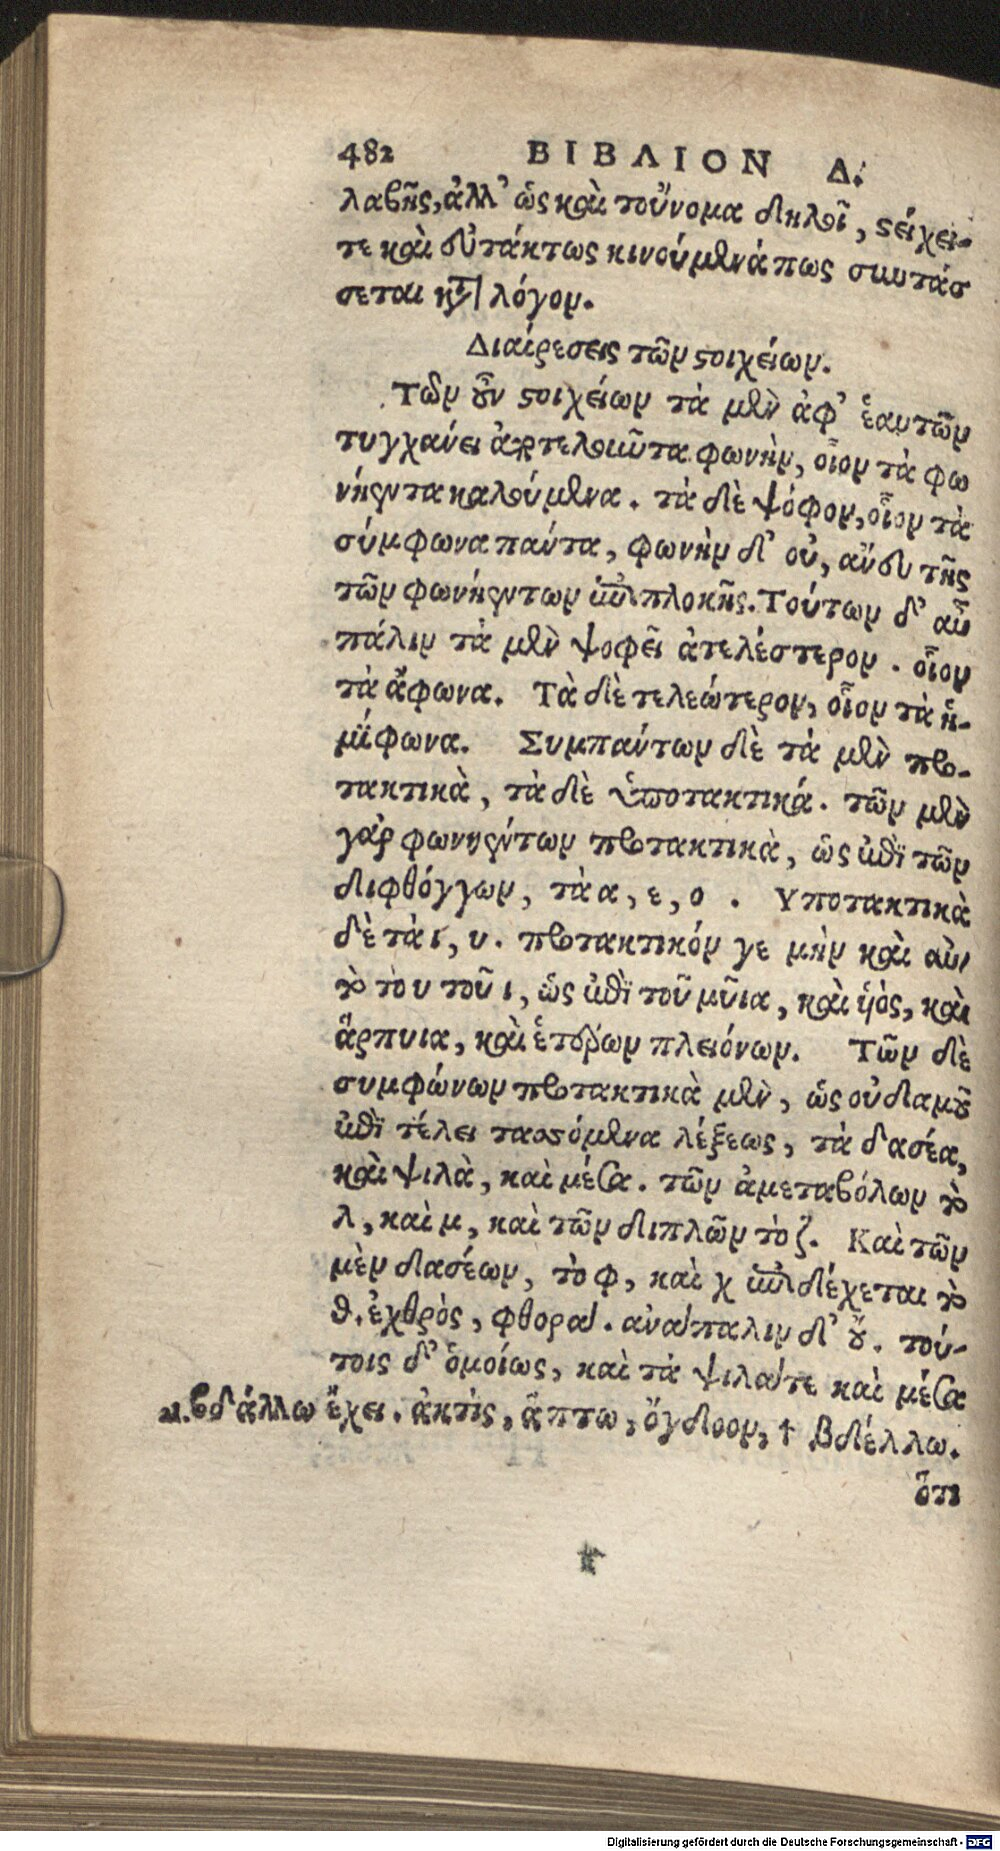 482 ΒΙΒΛΙΟΝ Δ.
λαβῆς, ἀλλ' ὡς καὶ τοὔνομα δηλοῖ, στείχει-
τε καὶ εὐτάκτως κινούμενά πως συντάσ
σεται κατὰ λόγον.
Διαίρεσεις τῶν στοιχείων.
Τῶν οὖν στοιχείων τὰ μὲν ἀφ' ἑαυτῶν
τυγχάνει ἀποτελοῦντα φωνὴν, οἷον τὰ φω
νήεντα καλούμενα. τὰ δὲ ψόφον, οἷον τὰ
σύμφωνα πάντα, φωνὴν δ' οὐ, ἄνευ τῆς
τῶν φωνήεντων ἐπιπλοκῆς. Τούτων δ' αὖ
πάλιν τὰ μὲν ψοφεῖ ἀτελέστερον. οἷον
τὰ ἄφωνα. Τὰ δὲ τελεώτερον, οἷον τὰ ἡ-
μίφωνα. Συμπάντων δὲ τὰ μὲν προ-
τακτικὰ, τὰ δὲ ὑποτακτικά. τῶν μὲν
γὰρ φωνηέντων προτακτικὰ, ὡς ἐπὶ τῶν
διφθόγγων, τὰ α, ε, ο. Υποτακτικὰ
δὲ τὰ ι, υ. προτακτικόν γε μὴν καὶ αὐ/
τὸ το υ τοῦ ι, ὡς ἐπὶ τοῦ μῦια, καὶ ὑιὸς, καὶ
ἅρπυια, καὶ ἑτέρων πλειόνων. Τῶν δὲ
συμφώνων προτακτικὰ μὲν, ὡς οὐδαμοῦ
ἐπὶ τέλει τασσόμενα λέξεως, τὰ δασέα,
καὶ ψιλὰ, καὶ μέσα. τῶν ἀμεταβόλων τὸ
λ, καὶ μ, καὶ τῶν διπλῶν τὸ ζ. Καὶ τῶν
μὲν δασέων, τὸ φ, καὶ χ ἐπιδέχεται τὸ
θ. ἐχθρὸς, φθορά. ἀνάπαλιν δ' οὔ. τού-
τοις δ' ὁμοίως, καὶ τὰ ψιλά τε καὶ μέσα
ἔχει. ἀκτὶς, ἅπτω, ὄγδοον, † βδέλλω.
αλ. βδάλλω
ὅτι
Digitalisierung gefördert durch die Deutsche Forschungsgemeinschaft - DFG